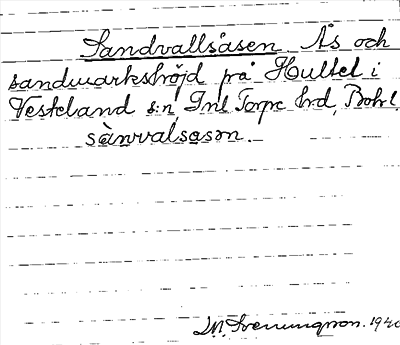 Sandvallsåsen Ås och
sandmarkshöjd på Hultet i
Vesteland s:n, Inl Torpe hrd, Bohl.
sànvalsasɔn.
1940